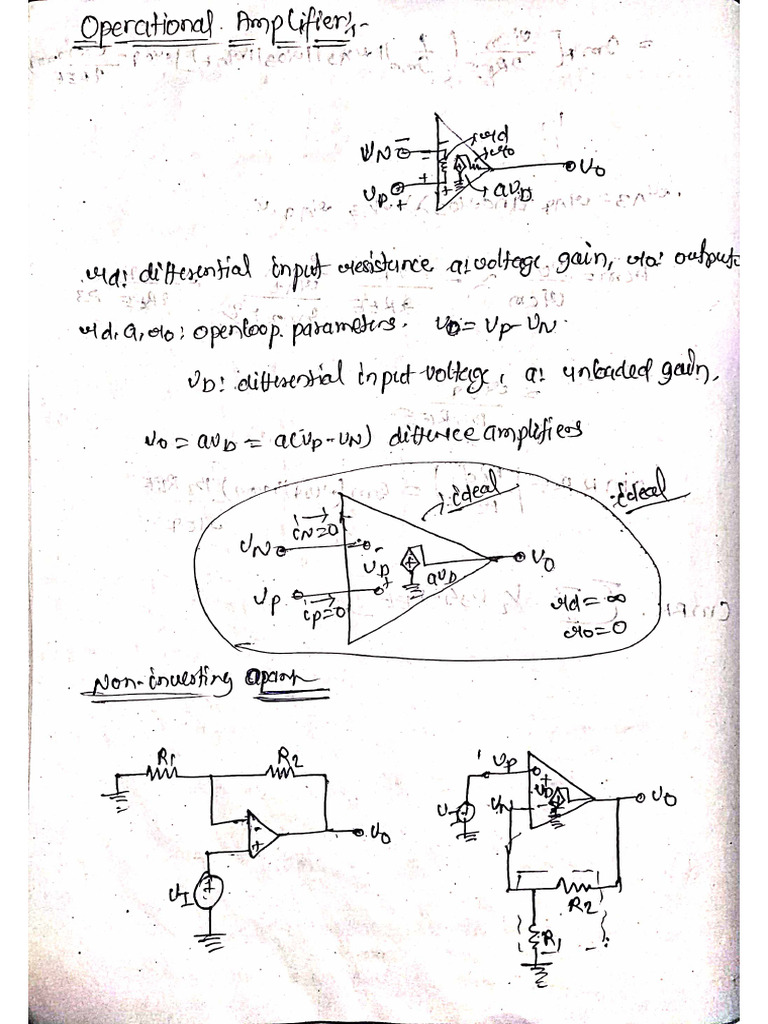 Operational Amplifiers:-
VN
rd
ro
Vo
VP
aVD
rd: differential input resistance a: voltage gain, ro: output
rd, a, ro: openloop parameters. VD = VP - VN.
VD: differential input voltage, a: unloaded gain.
vo = aVD = a(VP - VN) diffence amplifiers
ideal
ideal
iN=0
VN
VD
aVD
Vo
VP
iP=0
rd = ∞
ro = 0
Non-inverting opamp
R1
R2
Vo
VI
VP
VD
Vn
VI
Vo
R2
R1